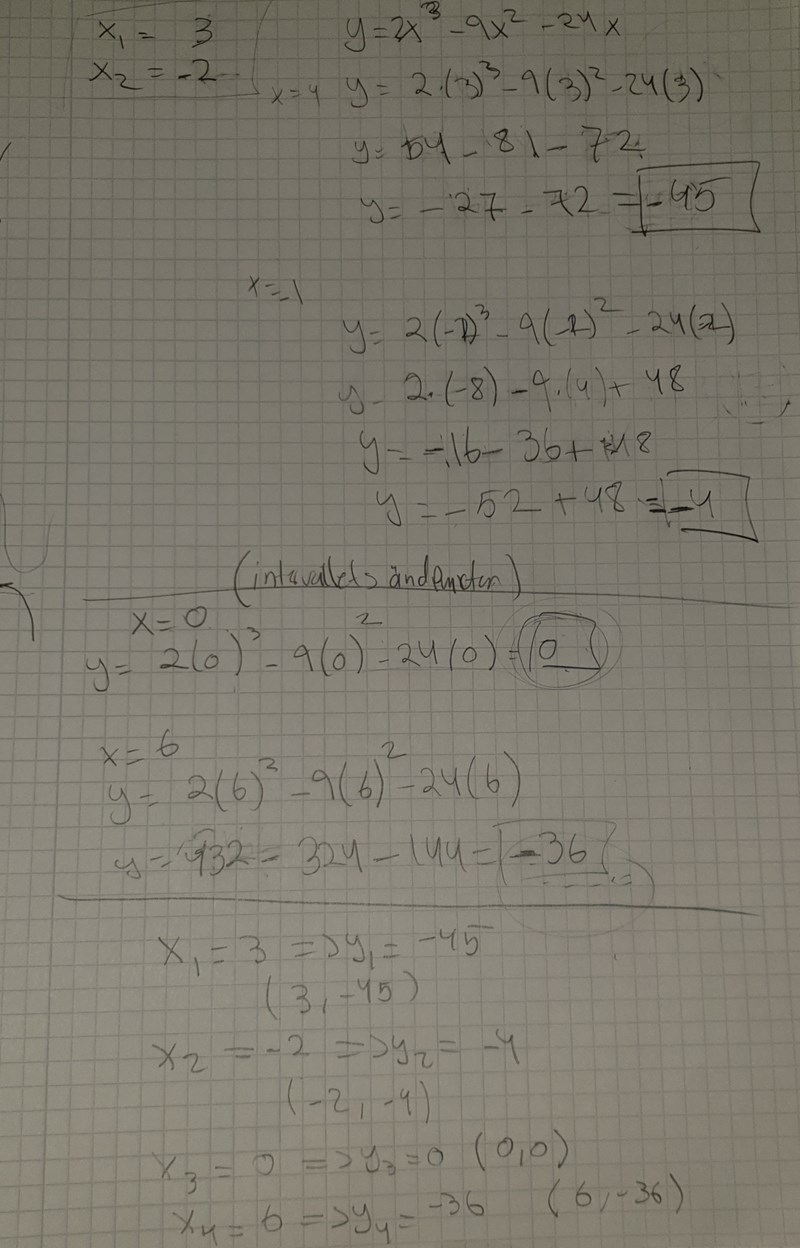 x₁ = 3
x₂ = -2
y = 2x³ - 9x² - 24x
x=4 y = 2·(3)³ - 9(3)² - 24(3)
y = 54 - 81 - 72
y = -27 - 72 = -45
x=-1
y = 2(-2)³ - 9(-2)² - 24(-2)
y = 2·(-8) - 9·(4) + 48
y = -16 - 36 + 48
y = -52 + 48 = -4
(intervallets ändpunkter)
x=0
y = 2(0)³ - 9(0)² - 24(0) = 0
x=6
y = 2(6)³ - 9(6)² - 24(6)
y = 432 - 324 - 144 = -36
x₁ = 3 => y₁ = -45
(3, -45)
x₂ = -2 => y₂ = -4
(-2, -4)
x₃ = 0 => y₃ = 0 (0,0)
x₄ = 6 => y₄ = -36 (6, -36)